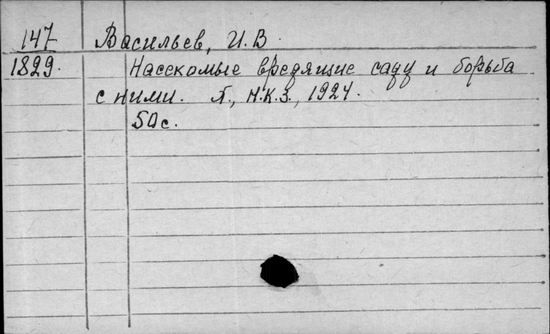 147 Васильев, И. В.
1829. Насекомые вредящие саду и борьба
с ними. Л., Н.К.З., 1924.
50 с.